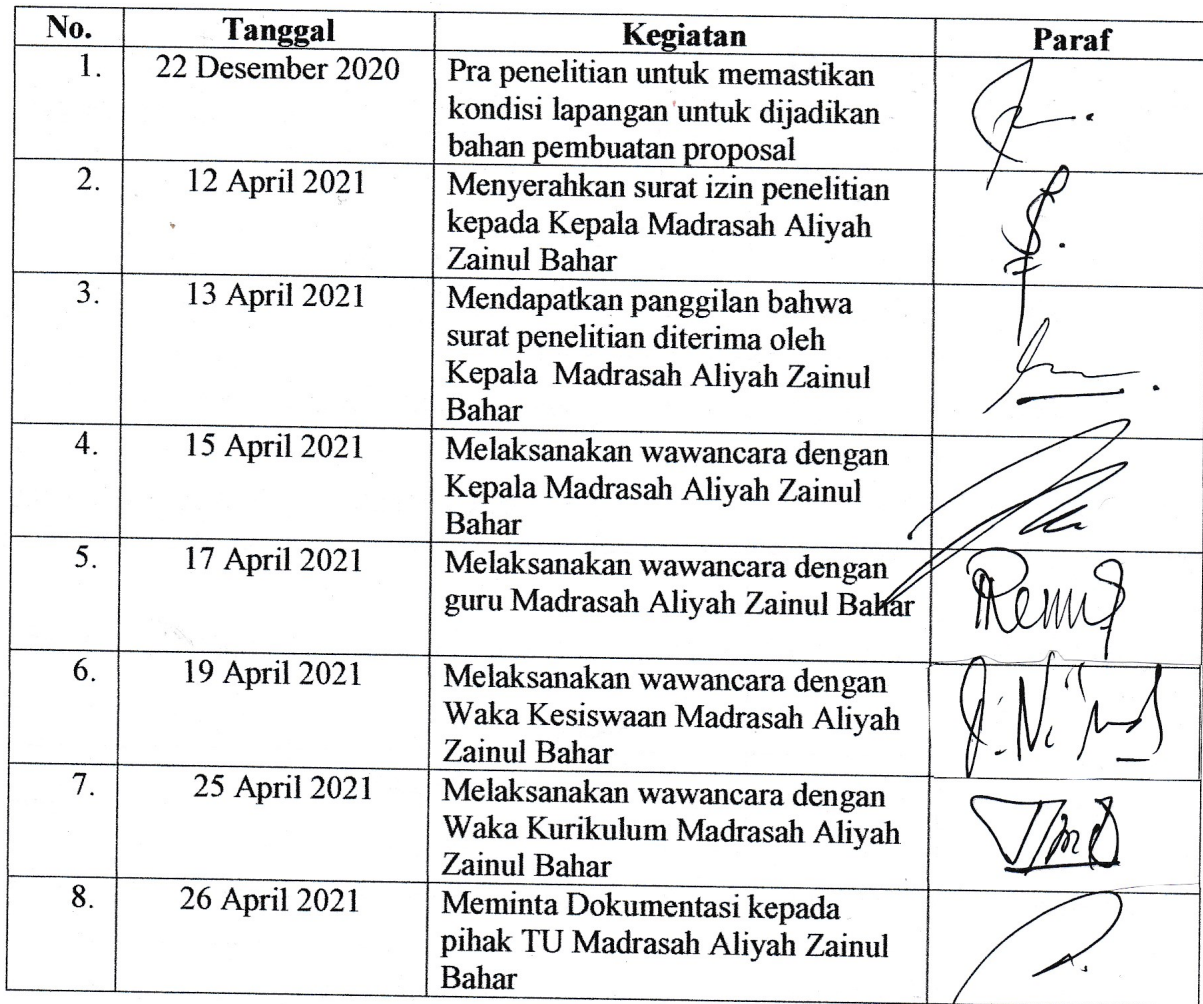 No. Tanggal Kegiatan Paraf
1. 22 Desember 2020 Pra penelitian untuk memastikan
kondisi lapangan untuk dijadikan
bahan pembuatan proposal
2. 12 April 2021 Menyerahkan surat izin penelitian
kepada Kepala Madrasah Aliyah
Zainul Bahar
3. 13 April 2021 Mendapatkan panggilan bahwa
surat penelitian diterima oleh
Kepala Madrasah Aliyah Zainul
Bahar
4. 15 April 2021 Melaksanakan wawancara dengan
Kepala Madrasah Aliyah Zainul
Bahar
5. 17 April 2021 Melaksanakan wawancara dengan
guru Madrasah Aliyah Zainul Bahar
6. 19 April 2021 Melaksanakan wawancara dengan
Waka Kesiswaan Madrasah Aliyah
Zainul Bahar
7. 25 April 2021 Melaksanakan wawancara dengan
Waka Kurikulum Madrasah Aliyah
Zainul Bahar
8. 26 April 2021 Meminta Dokumentasi kepada
pihak TU Madrasah Aliyah Zainul
Bahar